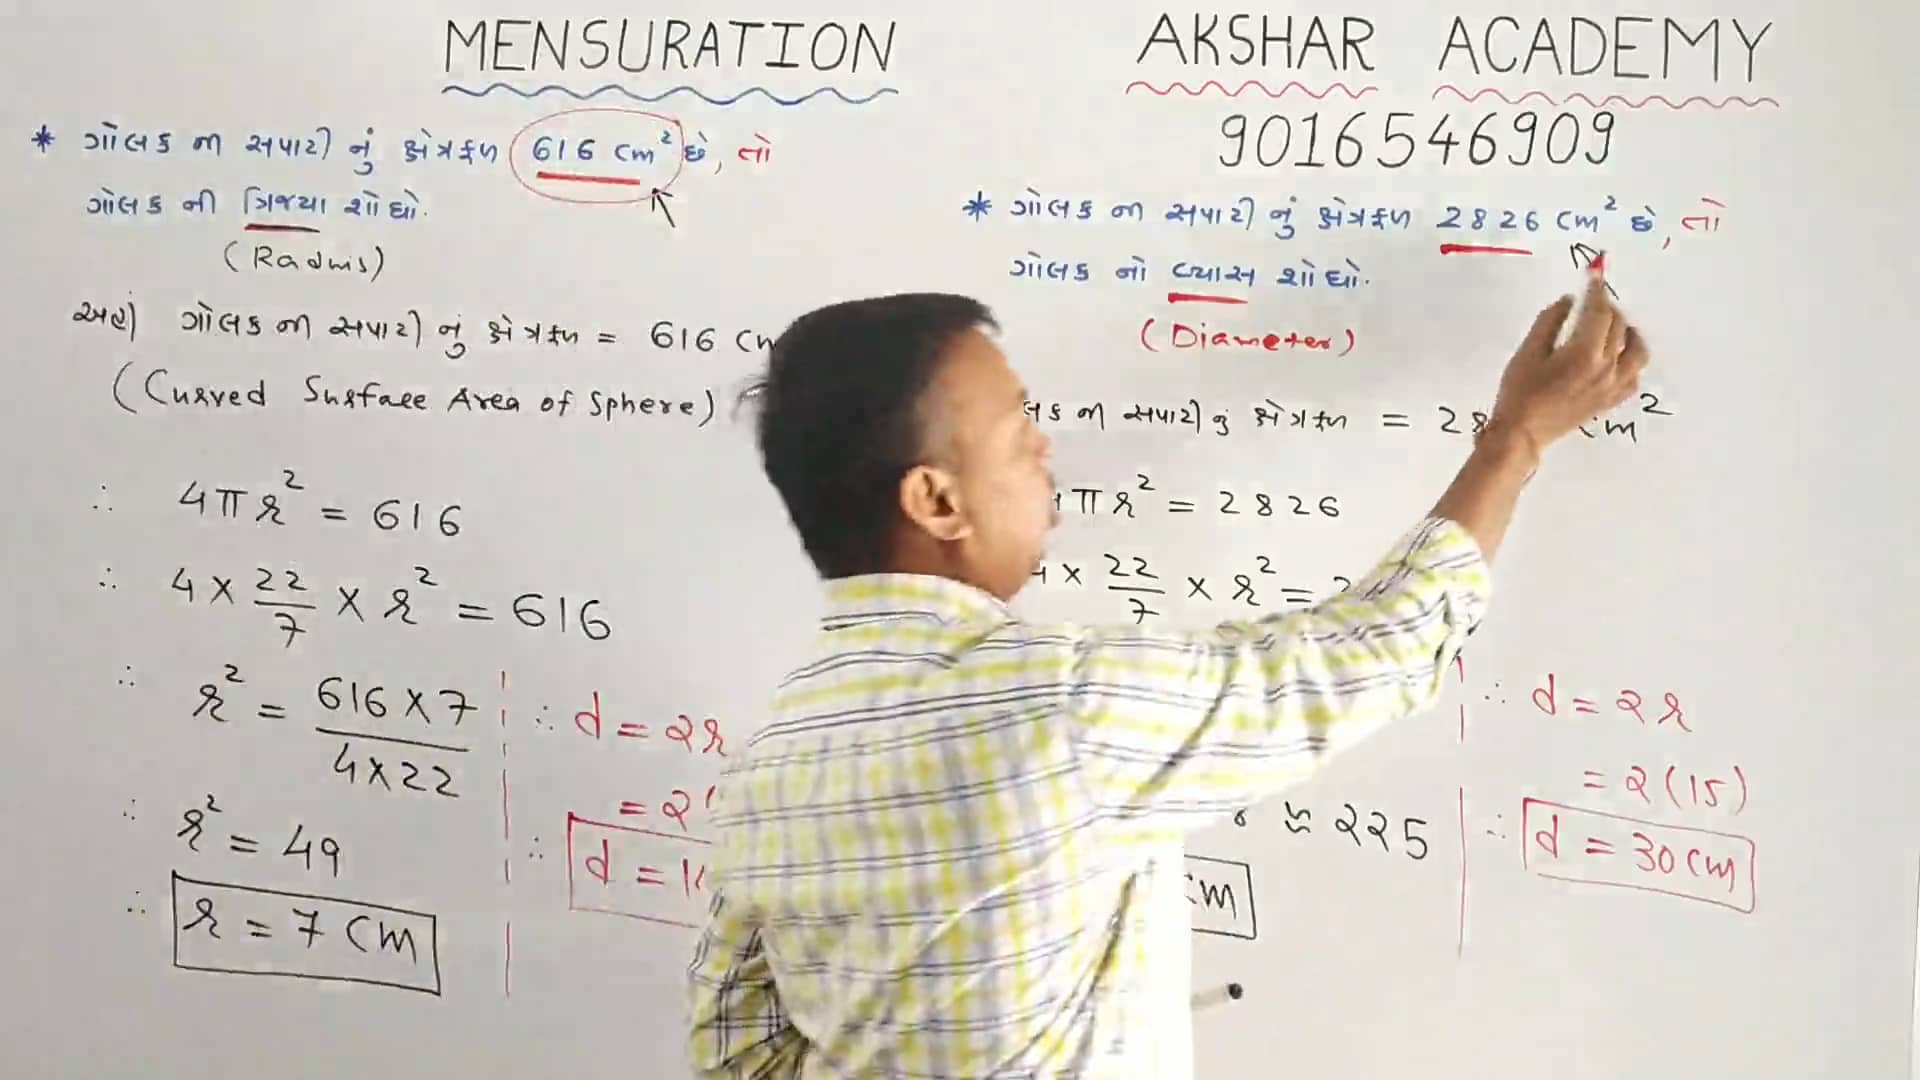 MENSURATION
AKSHAR ACADEMY
9016546909
* ગોલક ના સપાટી નું ક્ષેત્રફળ 616 cm² છે, તો
ગોલક ની ત્રિજ્યા શોધો.
(Radius)
અહીં ગોલક ના સપાટી નું ક્ષેત્રફળ = 616
(Curved Surface Area of Sphere)
∴ 4πr² = 616
∴ 4 × 22/7 × r² = 616
∴ r² = 616 × 7 / 4 × 22
∴ r² = 49
∴ r = 7 cm
∴ d = 2r
= 2
∴ d =
* ગોલક ના સપાટી નું ક્ષેત્રફળ 2826 cm² છે, તો
ગોલક નો વ્યાસ શોધો.
(Diameter)
ના સપાટી નું ક્ષેત્રફળ = cm²
πr² = 2826
× 22/7 × r² =
≈ 225
cm
∴ d = 2r
= 2(15)
∴ d = 30 cm